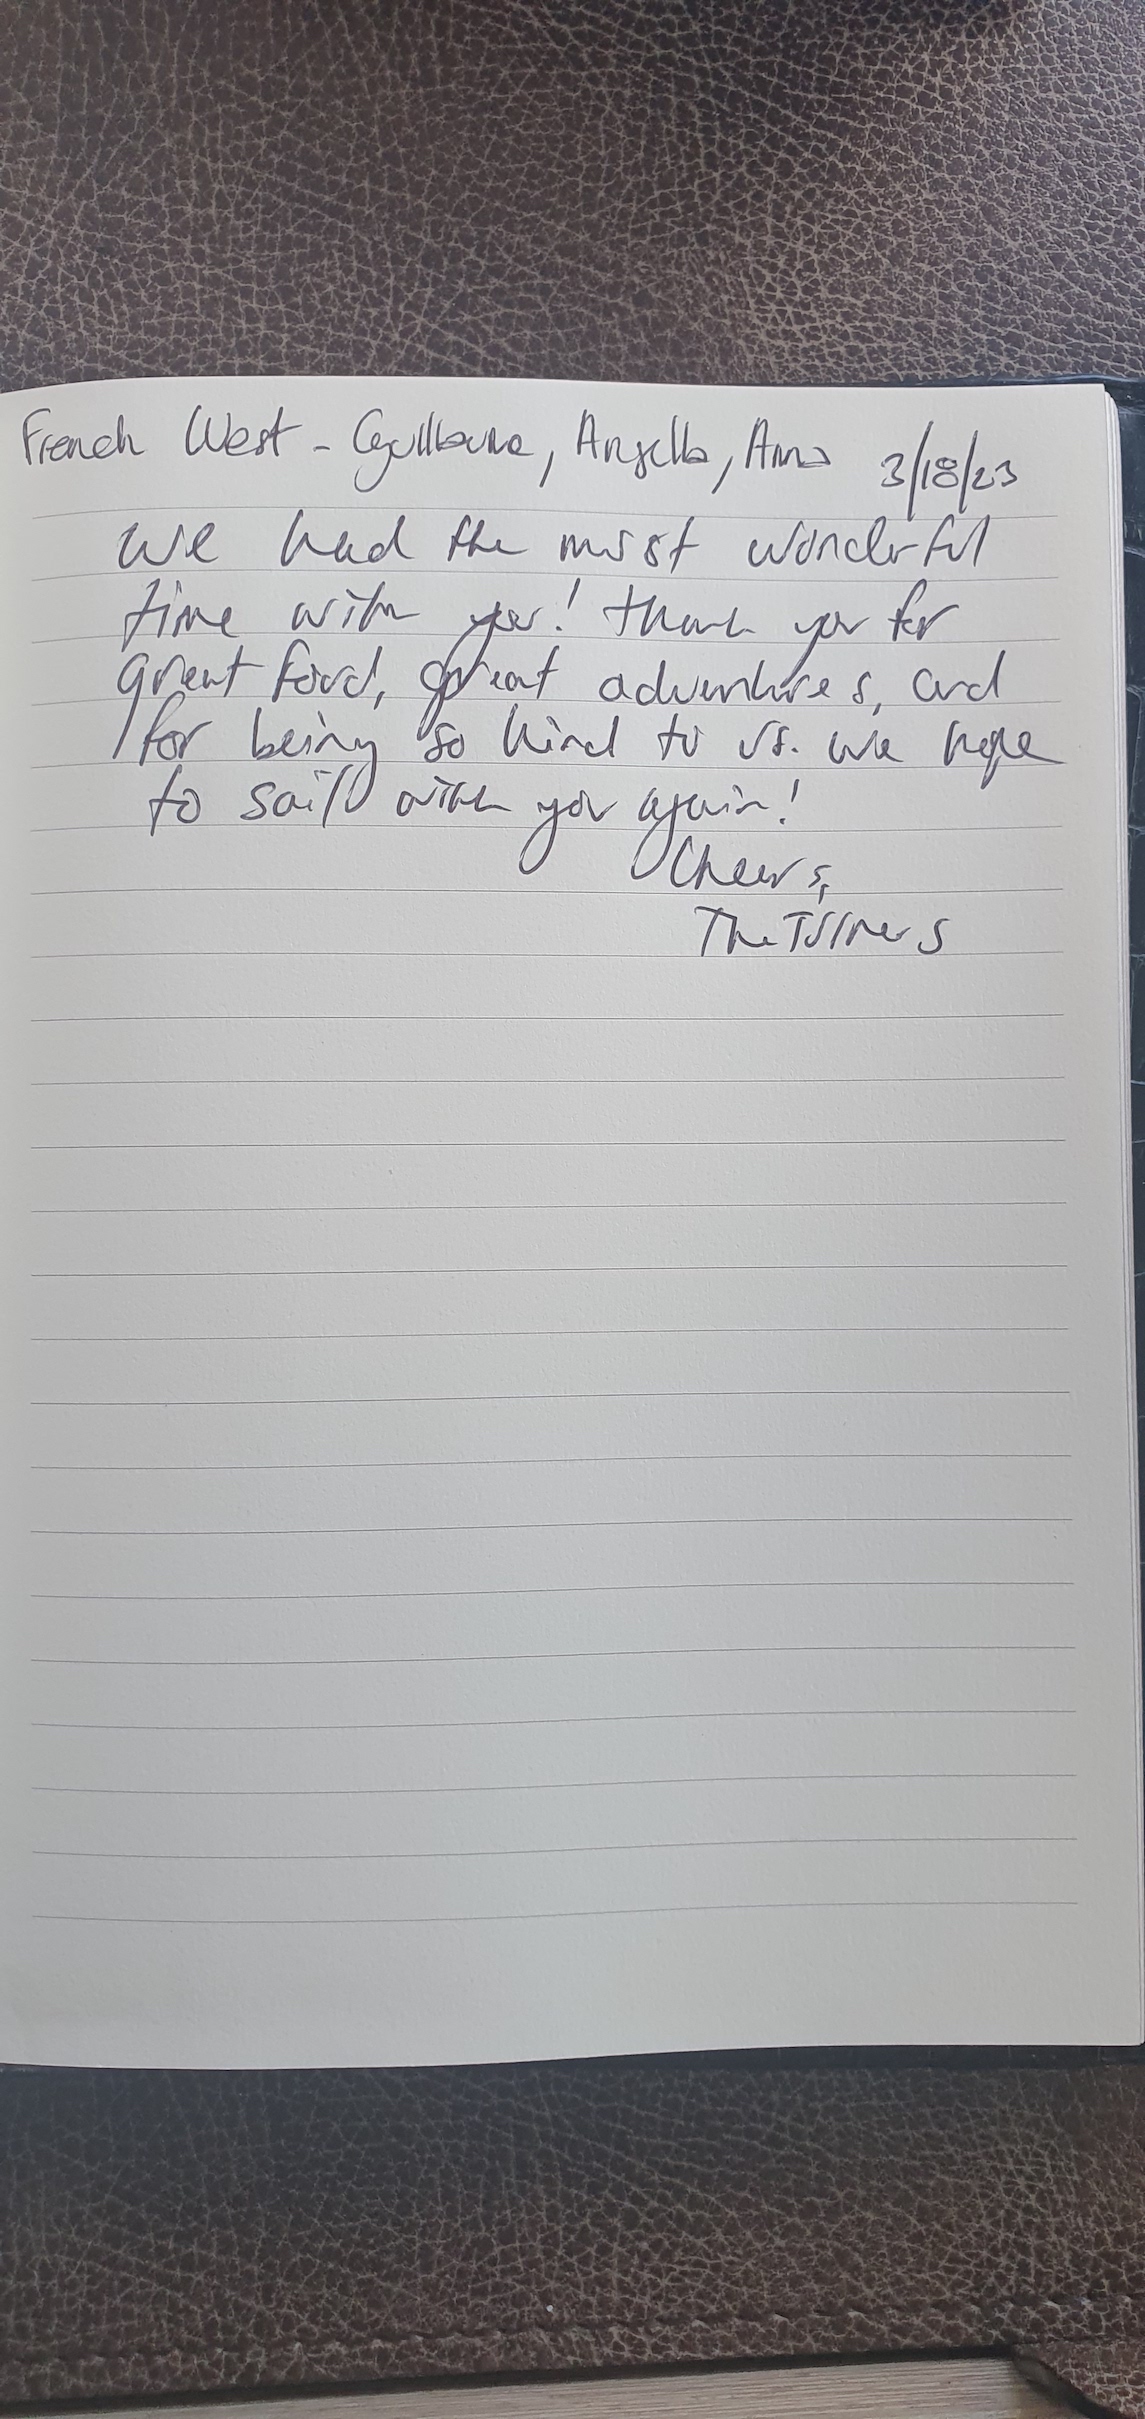 French West - Guillaume, Angella, Anna 3/18/23
We had the most wonderful
time with you! Thank you for
great food, great adventures, and
for being so kind to us. We hope
to sail with you again!
Cheers,
The